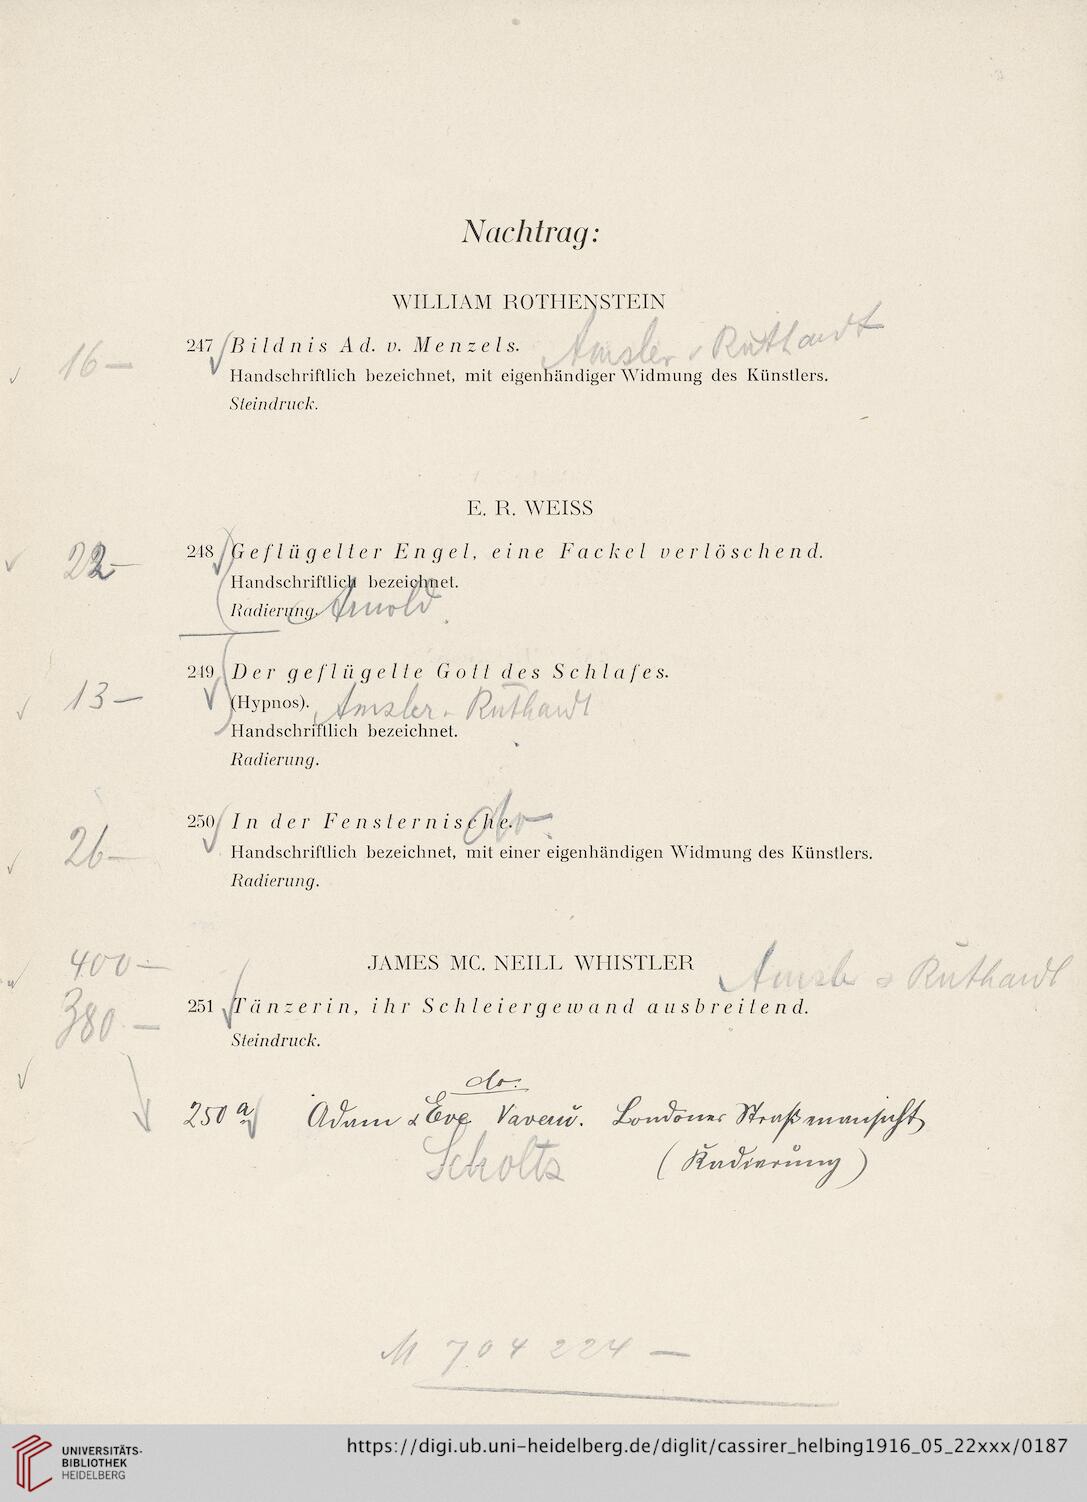 Nachtrag:
WILLIAM ROTHENSTEIN
16 —
247 Bildnis Ad. v. Menzels.
Amsler & Ruthardt
Handschriftlich bezeichnet, mit eigenhändiger Widmung des Künstlers.
Steindruck.
E. R. WEISS
22 —
248 Geflügelter Engel, eine Fackel verlöschend.
Handschriftlich bezeichnet.
Radierung. Arnold
249 Der geflügelte Gott des Schlafes.
13 —
(Hypnos). Amsler - Ruthardt
Handschriftlich bezeichnet.
Radierung.
250 In der Fensternische. do
26 —
Handschriftlich bezeichnet, mit einer eigenhändigen Widmung des Künstlers.
Radierung.
400 —
JAMES MC. NEILL WHISTLER
Amsler & Ruthardt
380 —
251 Tänzerin, ihr Schleiergewand ausbreitend.
Steindruck.
do.
250 a Adam & Eve Londoner Straßenansicht
Scholtz (Radierung)
M 704 224 —
UNIVERSITÄTS-
BIBLIOTHEK
HEIDELBERG
https://digi.ub.uni-heidelberg.de/diglit/cassirer_helbing1916_05_22xxx/0187